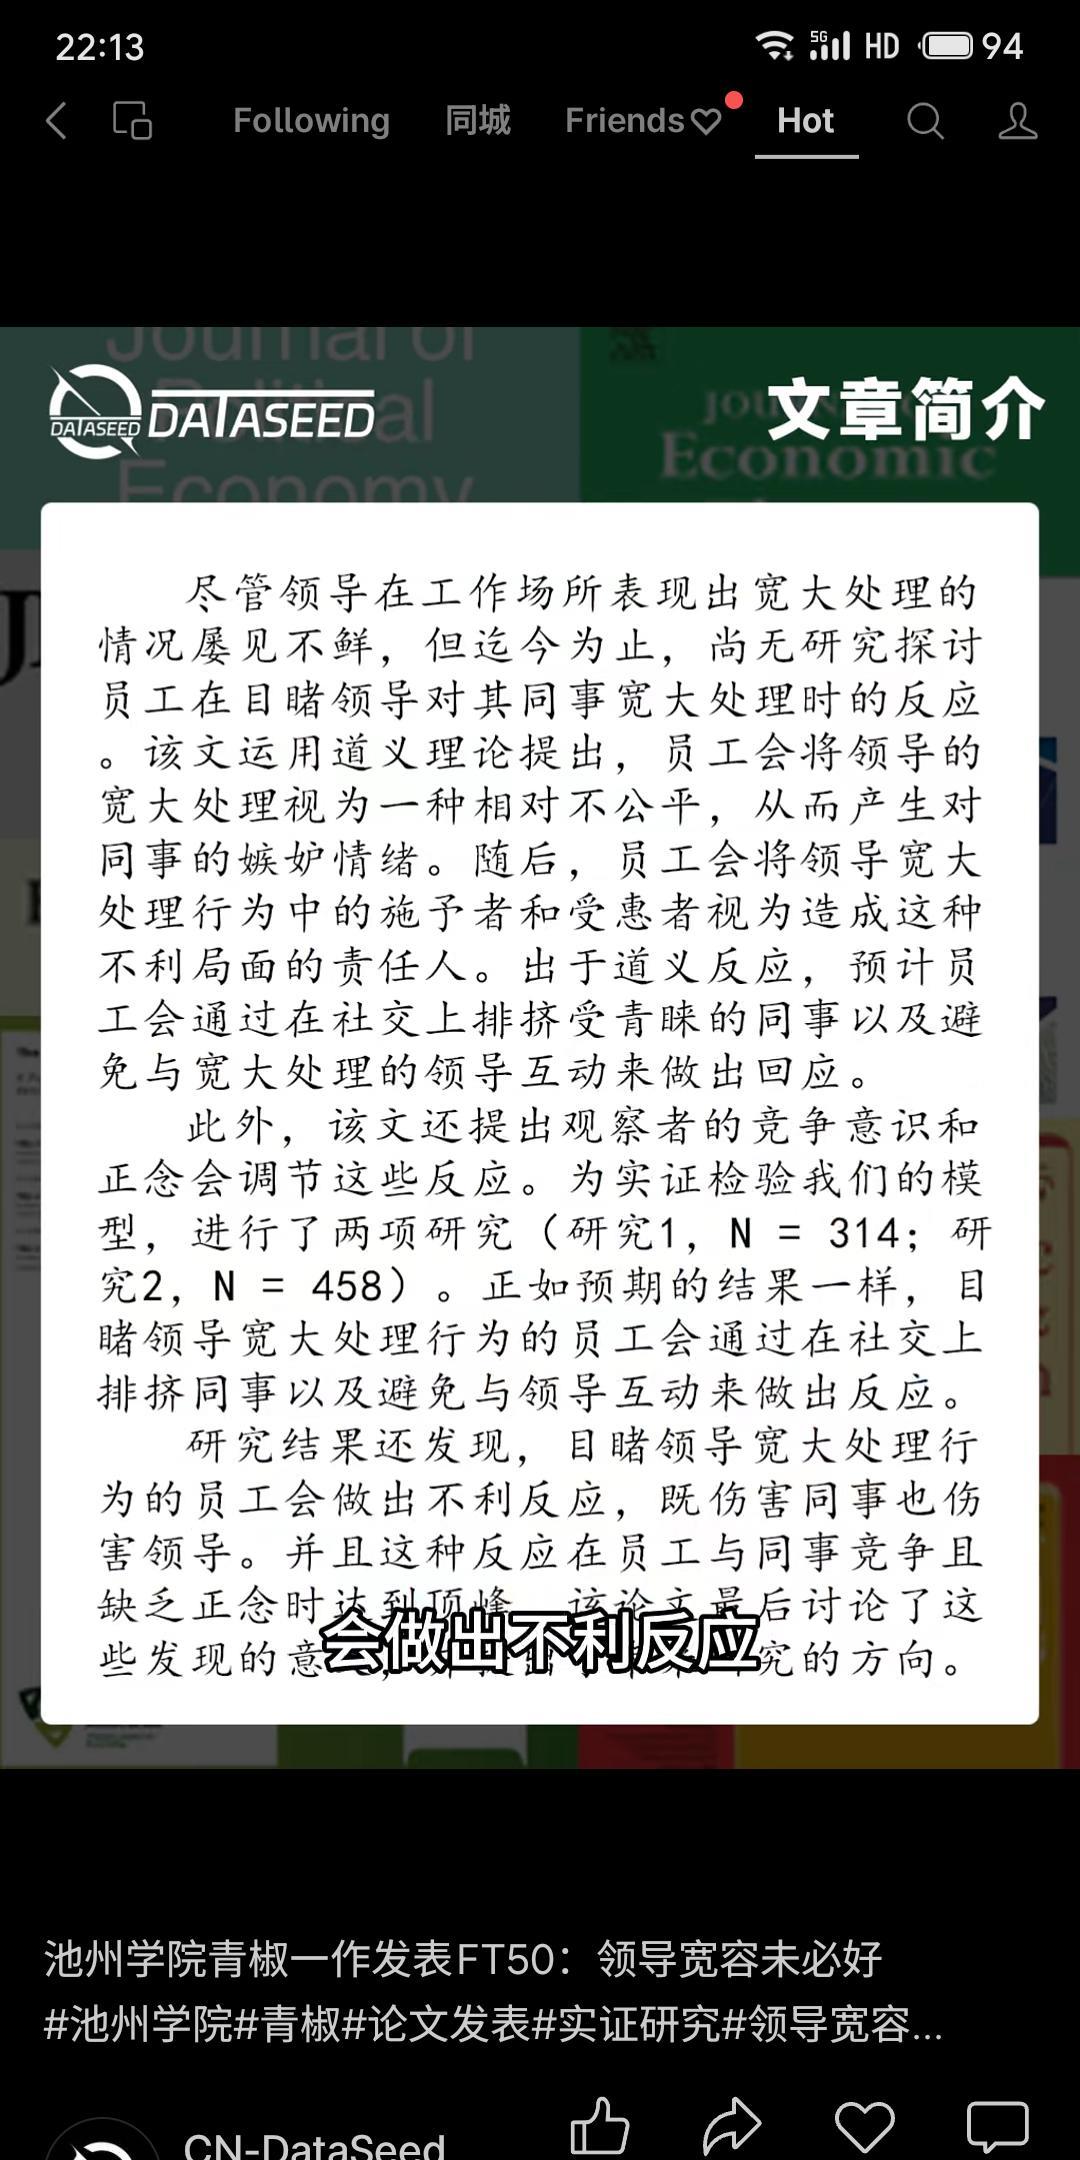 22:13
5G HD 94
Following 同城 Friends Hot
Journal of
Political
Economy
Economic
DATASEED DATASEED
文章简介
尽管领导在工作场所表现出宽大处理的
情况屡见不鲜，但迄今为止，尚无研究探讨
员工在目睹领导对其同事宽大处理时的反应
。该文运用道义理论提出，员工会将领导的
宽大处理视为一种相对不公平，从而产生对
同事的嫉妒情绪。随后，员工会将领导宽大
处理行为中的施予者和受惠者视为造成这种
不利局面的责任人。出于道义反应，预计员
工会通过在社交上排挤受青睐的同事以及避
免与宽大处理的领导互动来做出回应。
此外，该文还提出观察者的竞争意识和
正念会调节这些反应。为实证检验我们的模
型，进行了两项研究（研究1，N = 314；研
究2，N = 458）。正如预期的结果一样，目
睹领导宽大处理行为的员工会通过在社交上
排挤同事以及避免与领导互动来做出反应。
研究结果还发现，目睹领导宽大处理行
为的员工会做出不利反应，既伤害同事也伤
害领导。并且这种反应在员工与同事竞争且
缺乏正念时达到顶峰 该论文最后讨论了这
些发现的意 究的方向。
会做出不利反应
池州学院青椒一作发表FT50：领导宽容未必好
#池州学院#青椒#论文发表#实证研究#领导宽容...
CN-DataSeed